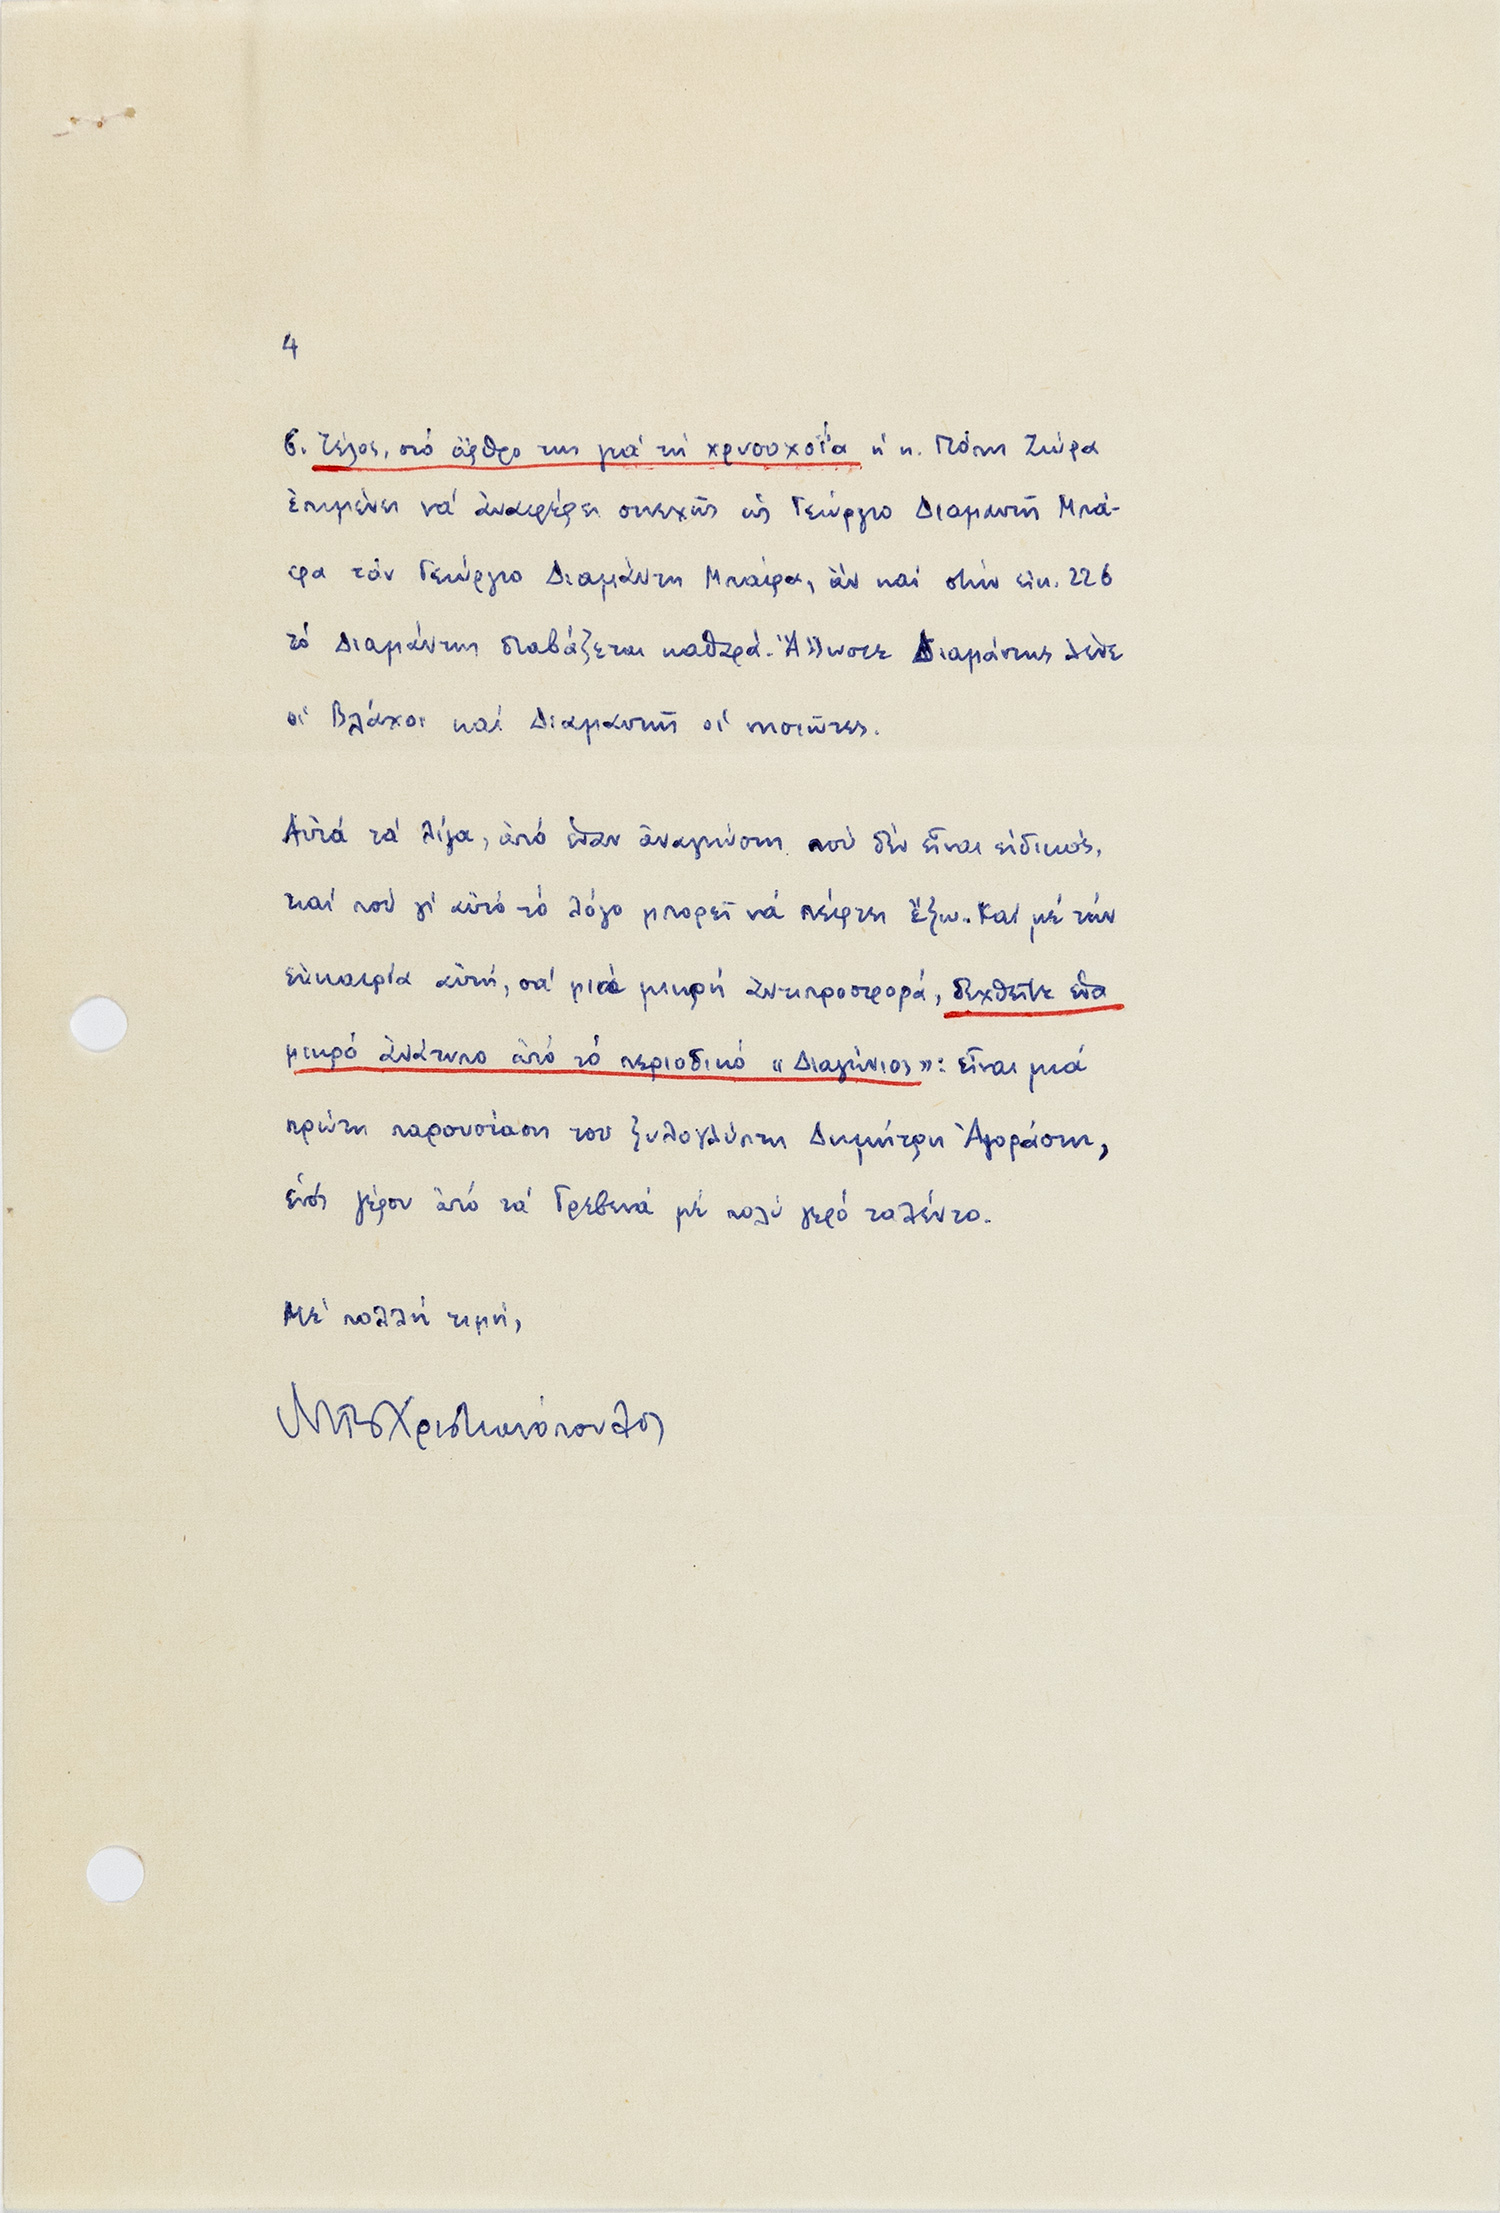 4
6. Τέλος, στό ἄρθρο της γιά τή χρυσοχοΐα ἡ κ. Πόπη Ζώρα
ἐπιμένει νά ἀναφέρει συνεχῶς ὡς Γεώργιο Διαμαντῆ Μπά-
φα τόν Γεώργιο Διαμάντη Μπάφα, ἄν καί στήν εἰκ. 226
τό Διαμάντης διαβάζεται καθαρά. Ἄλλωστε Διαμάντης λένε
οἱ Βλάχοι καί Διαμαντῆ οἱ νησιῶτες.
Αὐτά τά λίγα, ἀπό ἕναν ἀναγνώστη πού δέν εἶναι εἰδικός,
καί πού γι' αὐτό τό λόγο μπορεῖ νά πέφτει ἔξω. Καί μέ τήν
εὐκαιρία αὐτή, σά μιά μικρή ἀντιπροσφορά, δεχθεῖτε ἕνα
μικρό ἀνάτυπο ἀπό τό περιοδικό «Διαγώνιος»: εἶναι μιά
πρώτη παρουσίαση του ξυλογλύπτη Δημήτρη Ἀγοράστη,
ἑνός γέρου ἀπό τά Γρεβενά μέ πολύ γερό ταλέντο.
Μέ πολλή τιμή,
Χριστιανόπουλος